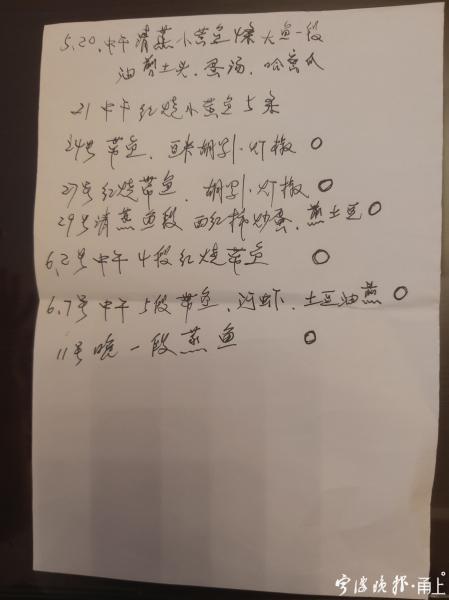 5.20.中午清蒸小黄鱼4条 大鱼一段
油煎土豆.蛋汤.哈密瓜
21 中午红烧小黄鱼5条
24号 带鱼.豆 胡 .灯椒 O
27号红烧带鱼. 胡 .灯椒 O
29号清蒸鱼段 西红柿炒蛋.煎土豆 O
6.2号中午4段红烧带鱼 O
6.7号中午5段带鱼.河虾.土豆油煎 O
11号晚一段蒸鱼 O
宁波晚报·甬上